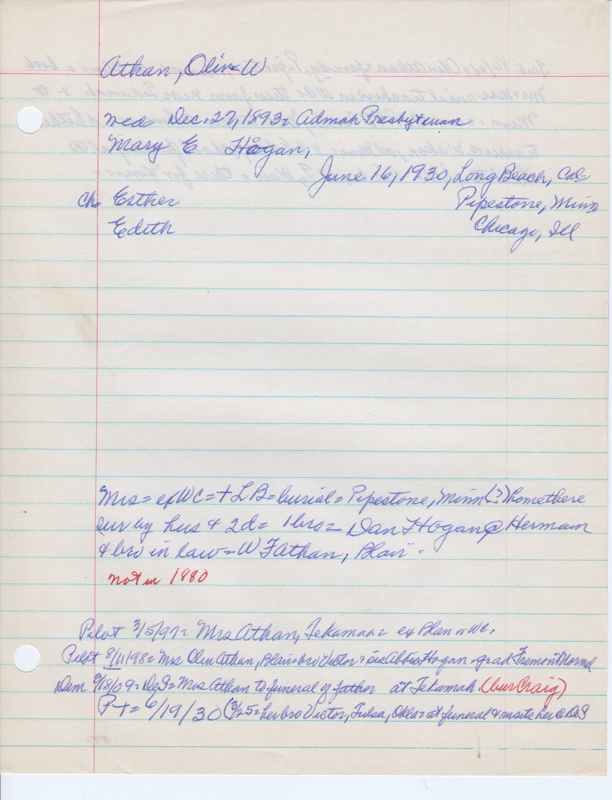 Athan, Olin = W
wed Dec. 27, 1893 = Admah Presbyterian
Mary E Hogan,
June 16, 1930, Long Beach, Cal
ch. Esther Pipestone, Minn
Edith Chicago, Ill
Mrs = ex WC = + LB = burial = Pipestone, Minn (?) home there
sur by hus & 2d = 1 bro = Dan Hogan @ Herman
& bro in law = W F Athan, Blair.
not in 1880
Pilot 3/5/97 = Mrs Athan, Tekamah = ex WC.
Pilot 8/11/98 = Mrs Olin Athan, Blair = bro Victor + sis Hogan = grad Fremont Normal
Dem 9/8/09 = Mrs Athan to funeral of father at Tekamah (bur Craig)
PT = 6/19/30 (3/25 = her bro Victor, Tulsa, Okla = at funeral &